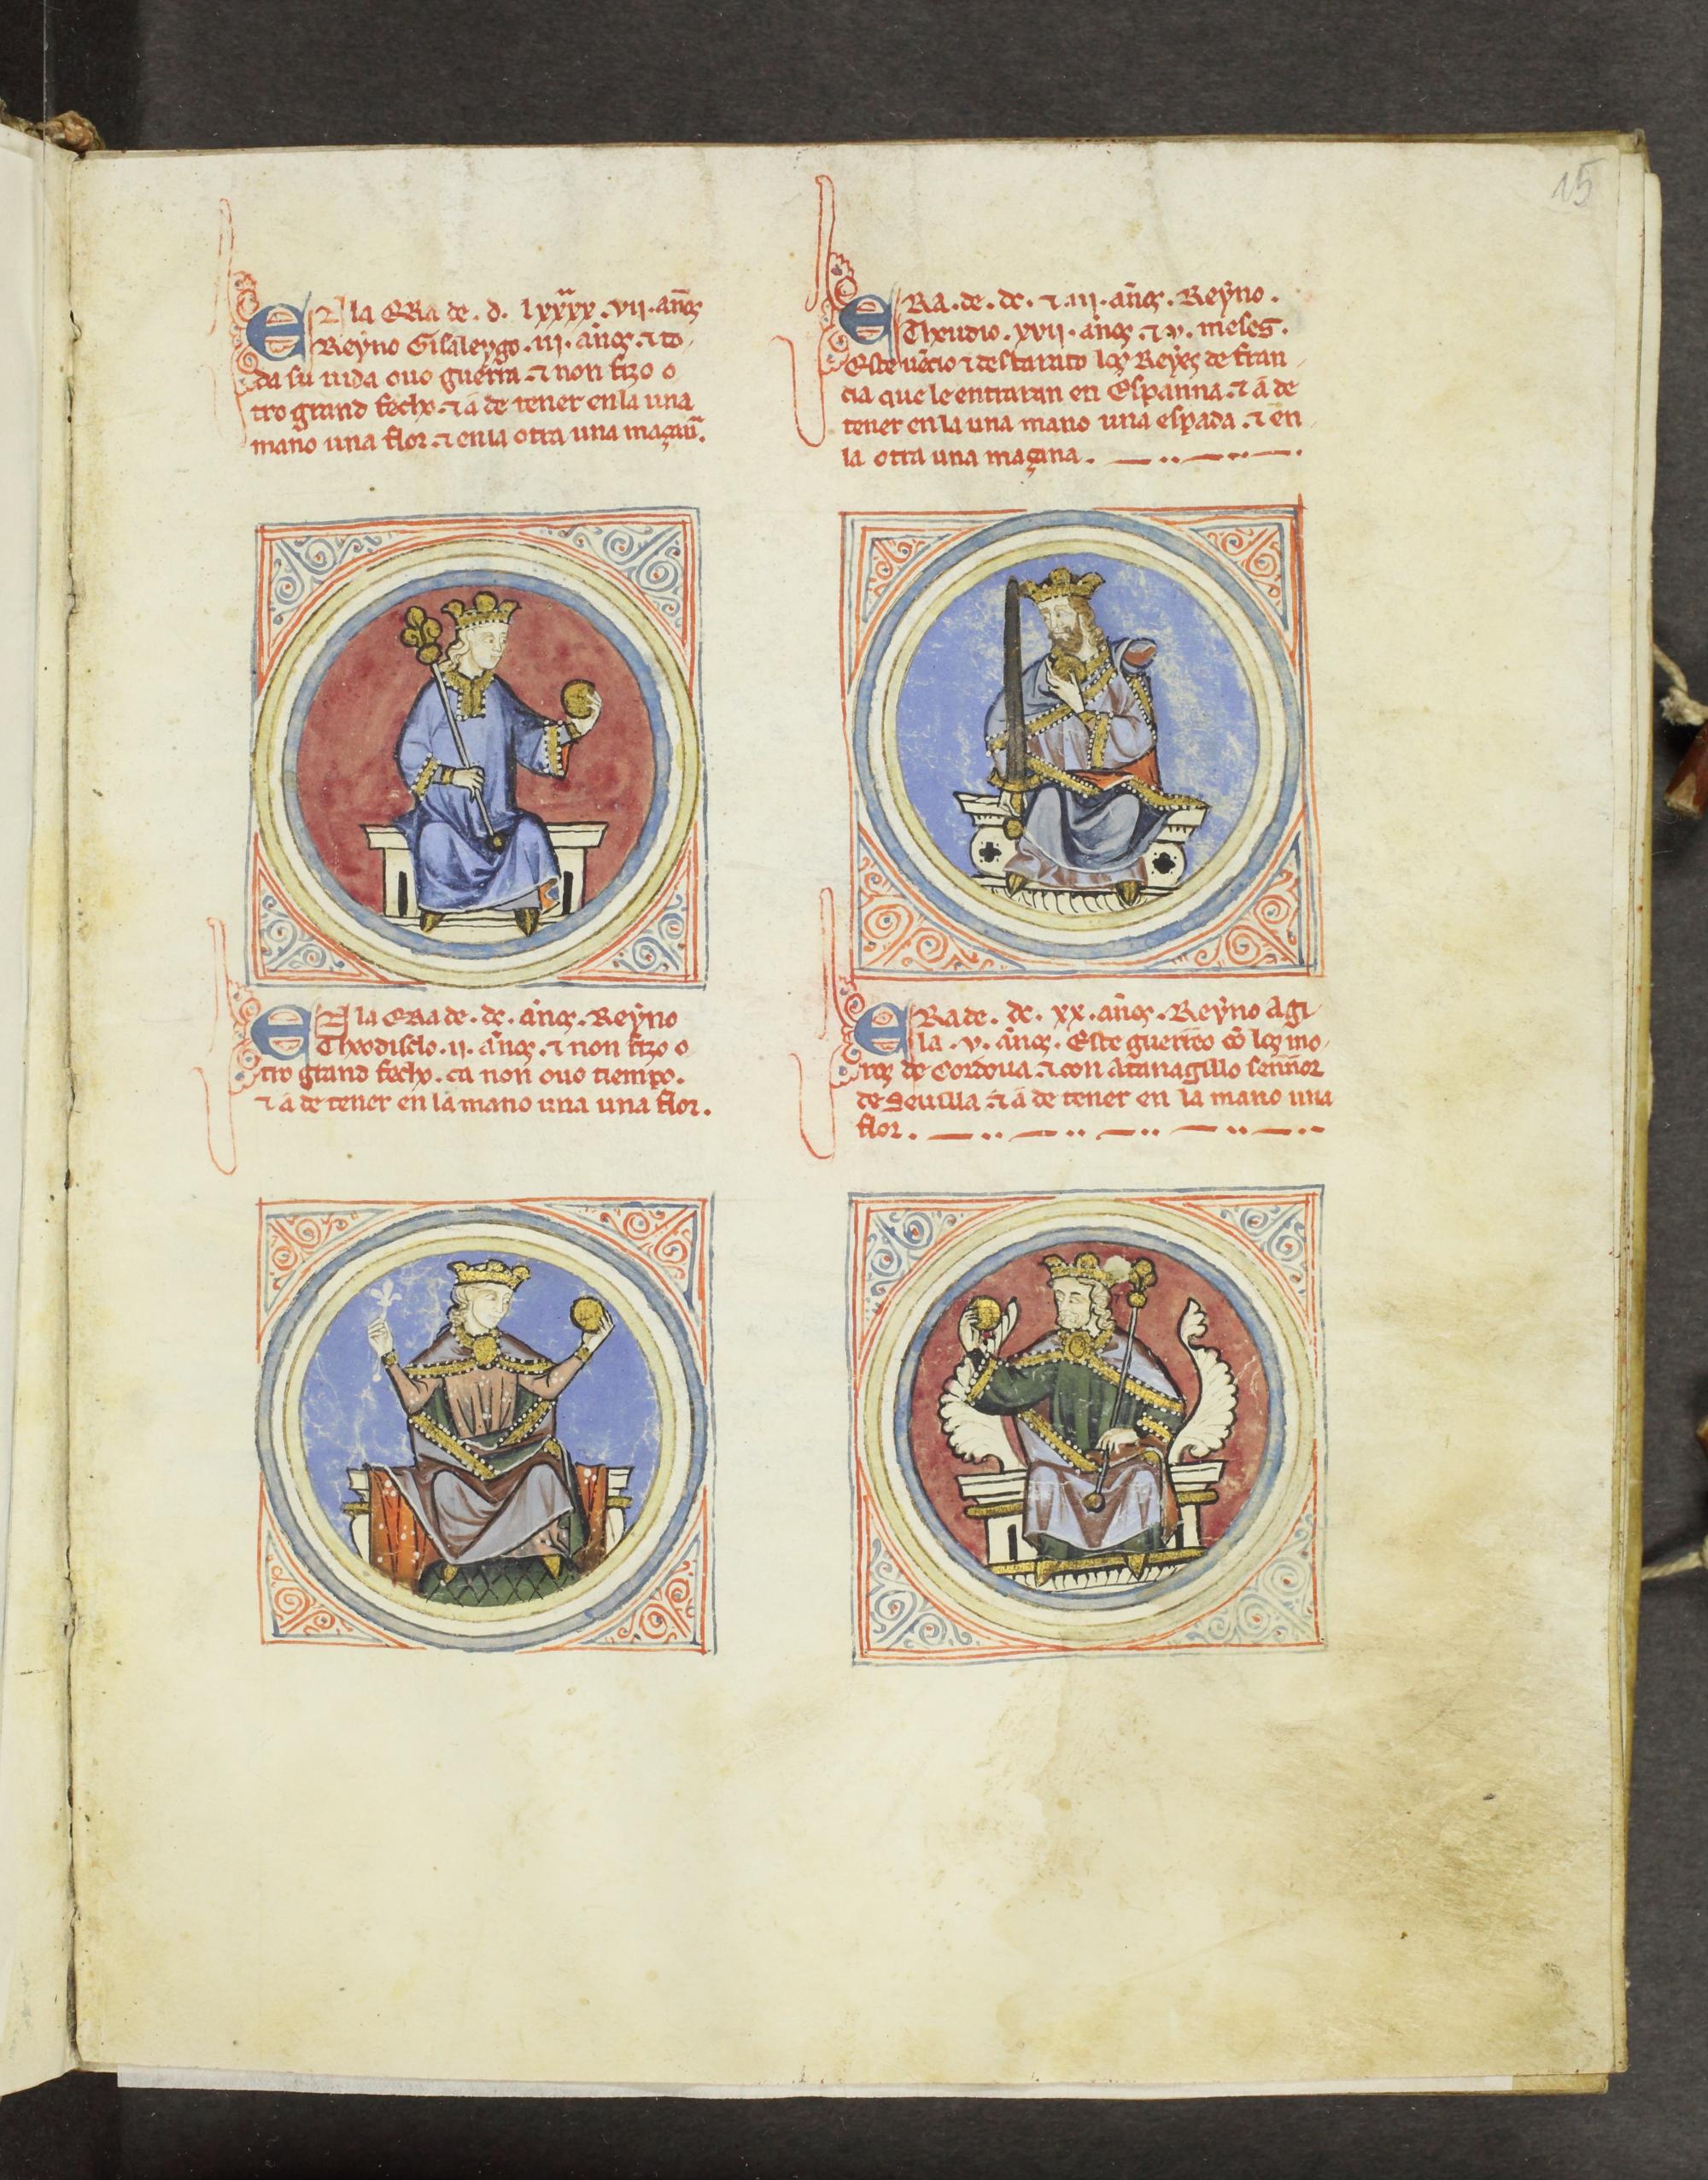 15
EN la ERA de . d . lxxxx . vii . an̄os
Reyno Gisaleygo . iii . an̄os . ⁊ to
da su uida ouo guerra . ⁊ non fizo o
tro grand fecho . ⁊ a de tener en la una
mano una flor . ⁊ en la otra una maçan̄a .
ERA . de . dc . ⁊ . iii . an̄os . Reyno .
Theudio . xvii . an̄os . ⁊ v . meses .
Este uēcio ⁊ destaruto los Reyes de fran
cia que le entraran en Espanna . ⁊ a de
tener en la una mano una espada . ⁊ en
la otra una maçana .
EN la ERA de . dc . an̄os . Reyno
Theodisclo . ii . an̄os . ⁊ non fizo o
tro grand fecho . ca non ouo tiempo .
⁊ a de tener en la mano una una flor .
ERA de . dc . xx . an̄os . Reyno Agi
la . v . an̄os . Este guerreo cō los mo
ros de Cordoua . ⁊ con Atanagillo sennor
de Seuilla . ⁊ a de tener en la mano una
flor .